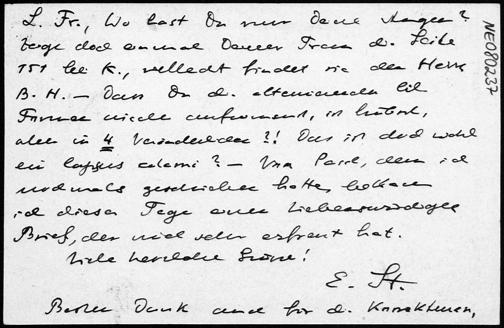 L. Fr., Wo hast Du nur Deine Augen?
Zeige doch einmal Deiner Frau d. Seite
151 bei K., vielleicht findet sie den Herrn
B. H. – Dass Du d. alternierenden
Formen nicht aufnimmst, ist hübsch,
aber in 4 ?! Das ist doch wohl
ein lapsus calami? – Von Pasch, dem ich
nochmals geschrieben hatte, bekam
ich dieser Tage einen liebenswürdigen
Brief, der mich sehr erfreut hat.
Viele herzliche Grüsse!
E. St.
Besten Dank auch für d. Korrekturen,
NE080237